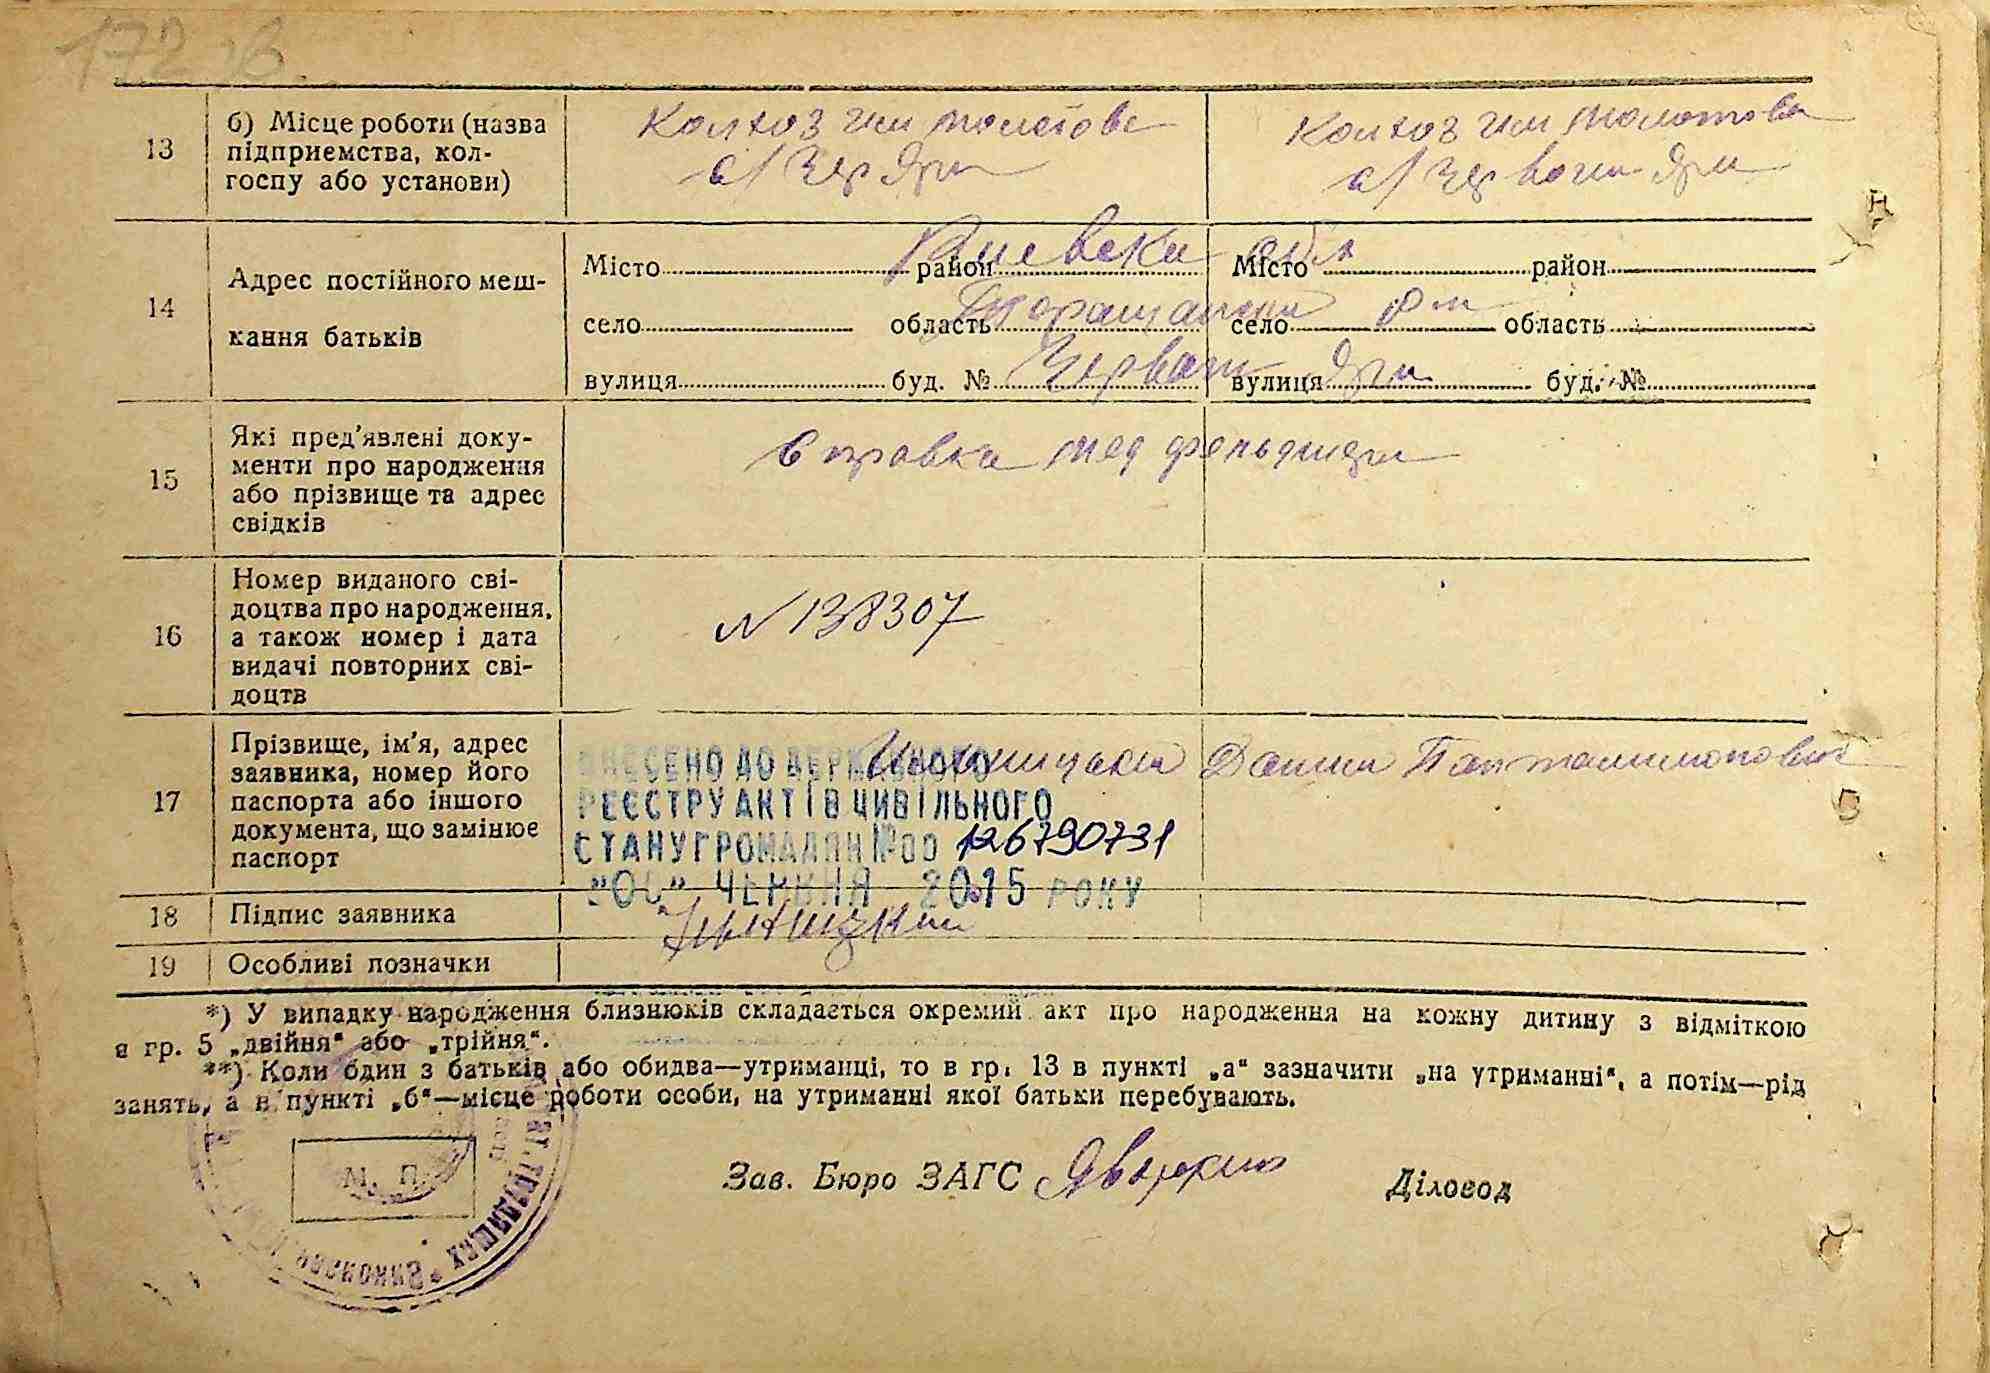 172 зв
13
б) Місце роботи (назва
підприємства, кол-
госпу або установи)
Колхоз им молотова
с/ Чер Яри
Колхоз им молотова
с/ Червони Яри
14
Адрес постійного меш-
кання батьків
Киевска обл
Місто район Місто район
Таращански рн
село область село область
Червони Яри
вулиця буд. № вулиця буд. №
15
Які пред’явлені доку-
менти про народження
або прізвище та адрес
свідків
Справка мед фельдшера
16
Номер виданого сві-
доцтва про народження,
а також номер і дата
видачі повторних сві-
доцтв
N 138307
17
Прізвище, ім’я, адрес
заявника, номер його
паспорта або іншого
документа, що замінює
паспорт
Данил Панталимонович
ВНЕСЕНО ДО ДЕРЖАВНОГО
РЕЄСТРУ АКТІВ ЦИВІЛЬНОГО
СТАНУ ГРОМАДЯН №00 126790731
ЧЕРВНЯ 2015 РОКУ
18
Підпис заявника
19
Особливі позначки
*) У випадку народження близнюків складається окремий акт про народження на кожну дитину з відміткою
в гр. 5 „двійня“ або „трійня“.
**) Коли один з батьків або обидва—утриманці, то в гр. 13 в пункті „а“ зазначити „на утриманні“, а потім—рід
занять, а в пункті „б“—місце роботи особи, на утриманні якої батьки перебувають.
М. П.
Зав. Бюро ЗАГС
Діловод